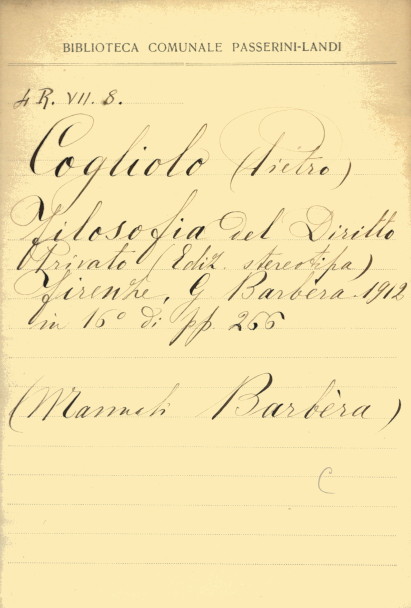 BIBLIOTECA COMUNALE PASSERINI-LANDI
4 R. VII. 8.
Cogliolo (Pietro)
Filosofia del Diritto
Privato (Ediz. stereotipa)
Firenze, G Barbèra 1912
in 16° di pp 266
(Manuali Barbèra)
C